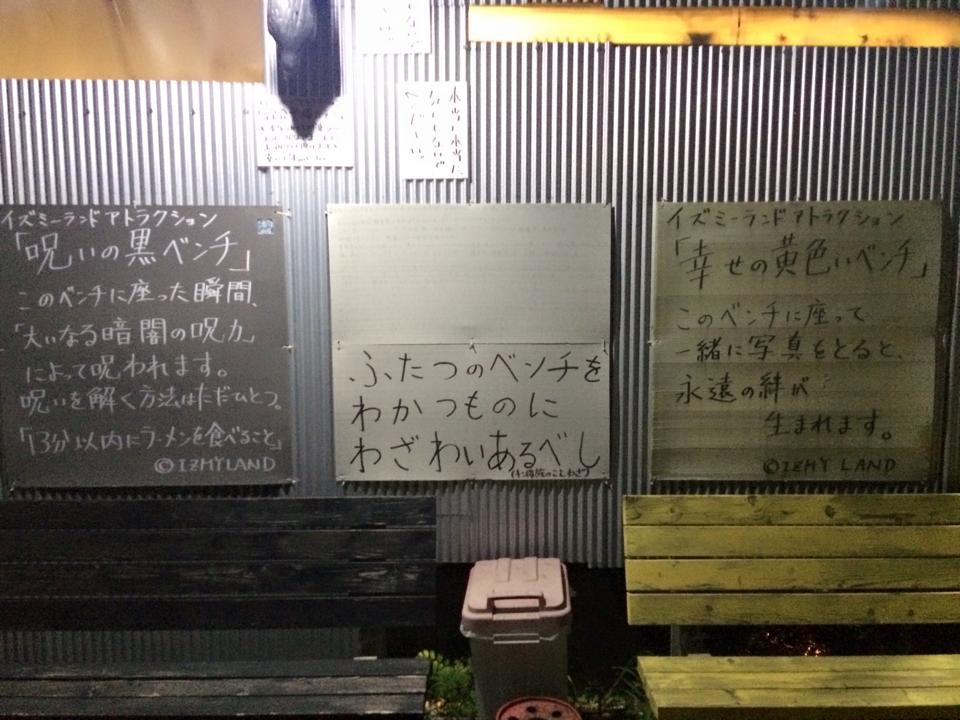 本当に本当に
イズミーランドアトラクション
「呪いの黒ベンチ」
このベンチに座った瞬間、
「大いなる暗闇の呪力」
によって呪われます。
呪いを解く方法はただひとつ。
「13分以内にラーメンを食べること」
©IZMYLAND
ふたつのベンチを
わかつものに
わざわいあるべし
イズミーランドアトラクション
「幸せの黄色いベンチ」
このベンチに座って
一緒に写真をとると、
永遠の絆が
生まれます。
©IZMY LAND